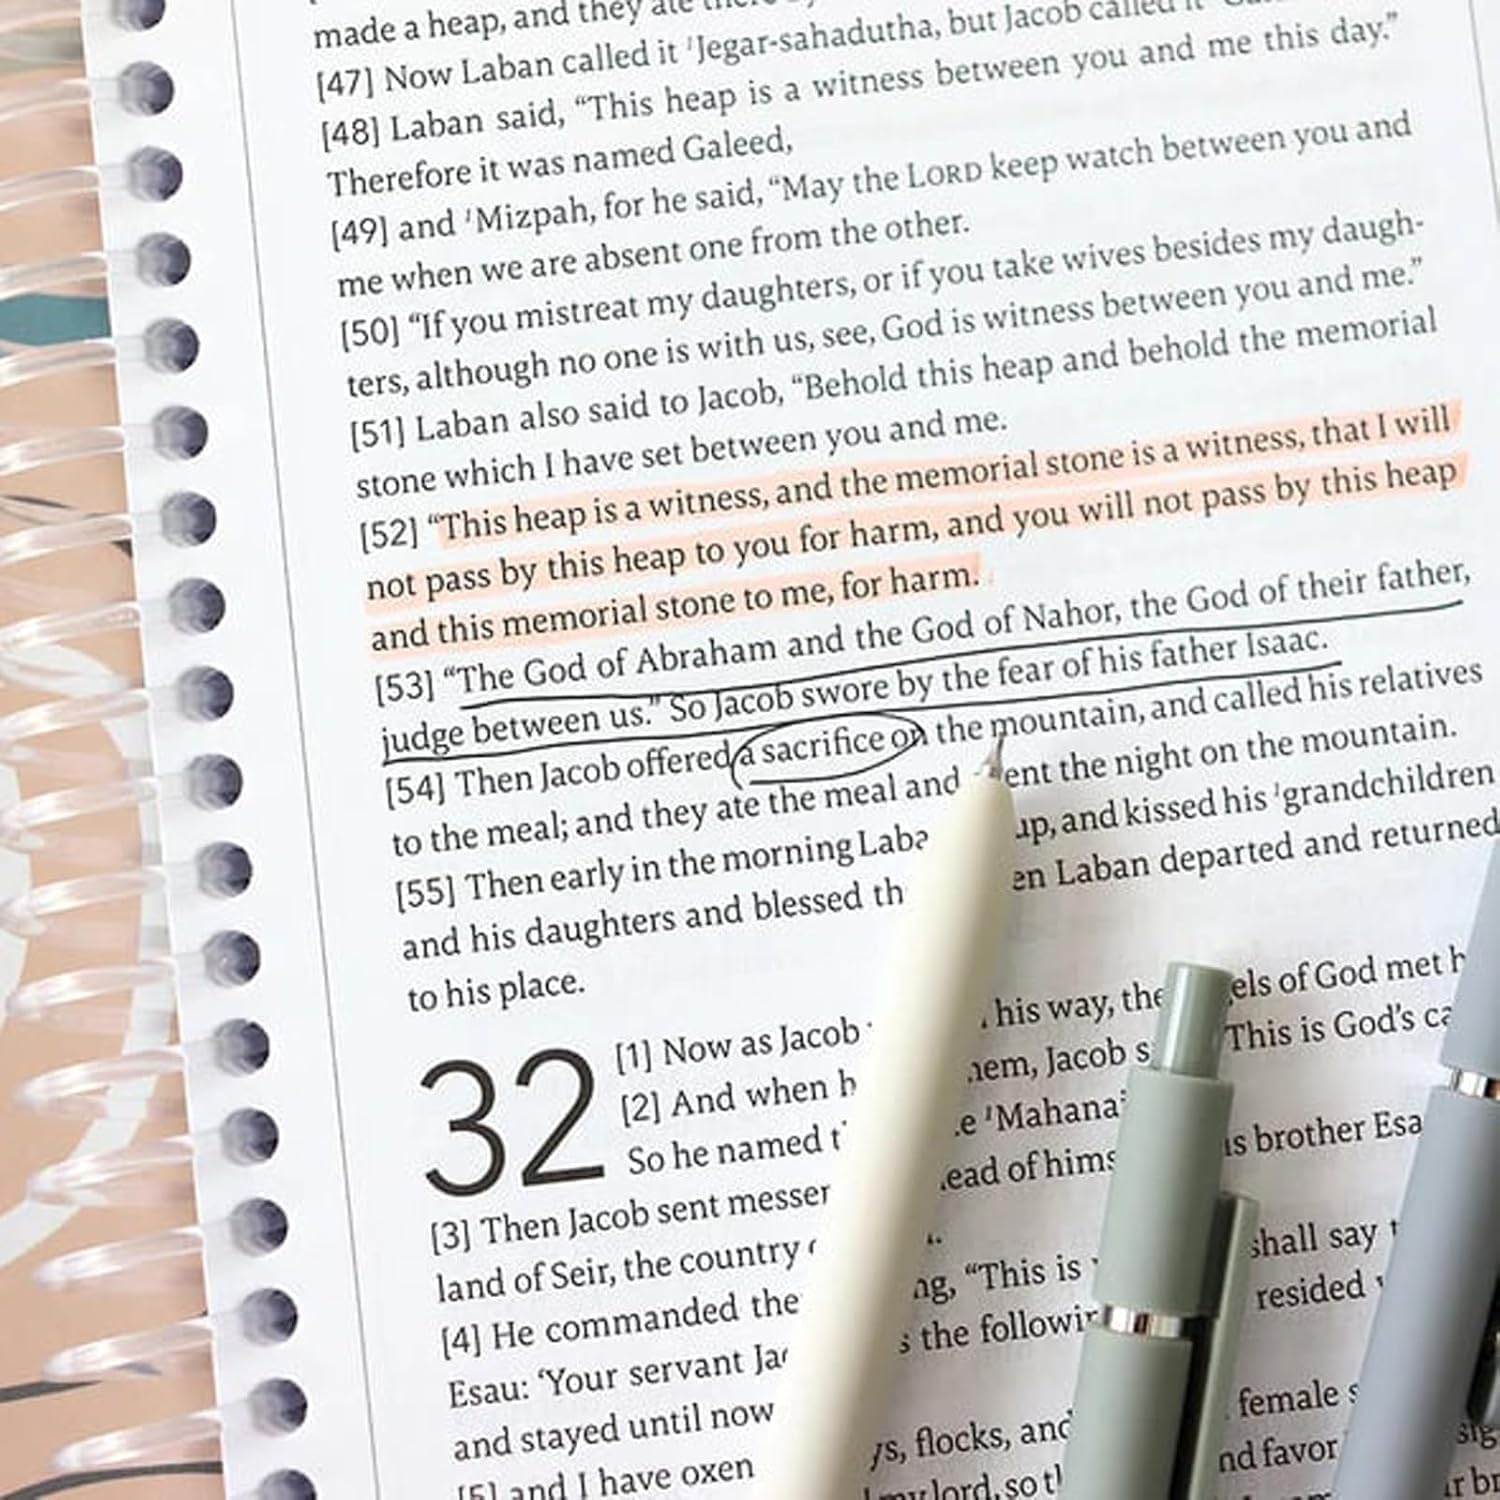 made a heap, and they ate
[47] Now Laban called it ¹Jegar-sahadutha, but Jacob called it
[48] Laban said, “This heap is a witness between you and me this day.”
Therefore it was named Galeed,
[49] and ¹Mizpah, for he said, “May the LORD keep watch between you and
me when we are absent one from the other.
[50] “If you mistreat my daughters, or if you take wives besides my daugh-
ters, although no one is with us, see, God is witness between you and me.”
[51] Laban also said to Jacob, “Behold this heap and behold the memorial
stone which I have set between you and me.
[52] “This heap is a witness, and the memorial stone is a witness, that I will
not pass by this heap to you for harm, and you will not pass by this heap
and this memorial stone to me, for harm.
[53] “The God of Abraham and the God of Nahor, the God of their father,
judge between us.” So Jacob swore by the fear of his father Isaac.
[54] Then Jacob offered a sacrifice on the mountain, and called his relatives
to the meal; and they ate the meal and ent the night on the mountain.
[55] Then early in the morning Laba up, and kissed his ¹grandchildren
and his daughters and blessed th en Laban departed and returned
to his place.
32
[1] Now as Jacob his way, the els of God met h
[2] And when h hem, Jacob s This is God’s ca
So he named t e ¹Mahana
[3] Then Jacob sent messer ead of hims is brother Esa
land of Seir, the country
[4] He commanded the ng, “This is shall say
Esau: ‘Your servant Ja s the followin resided
and stayed until now
[5] and I have oxen ys, flocks, and female s
my lord, so th nd favor